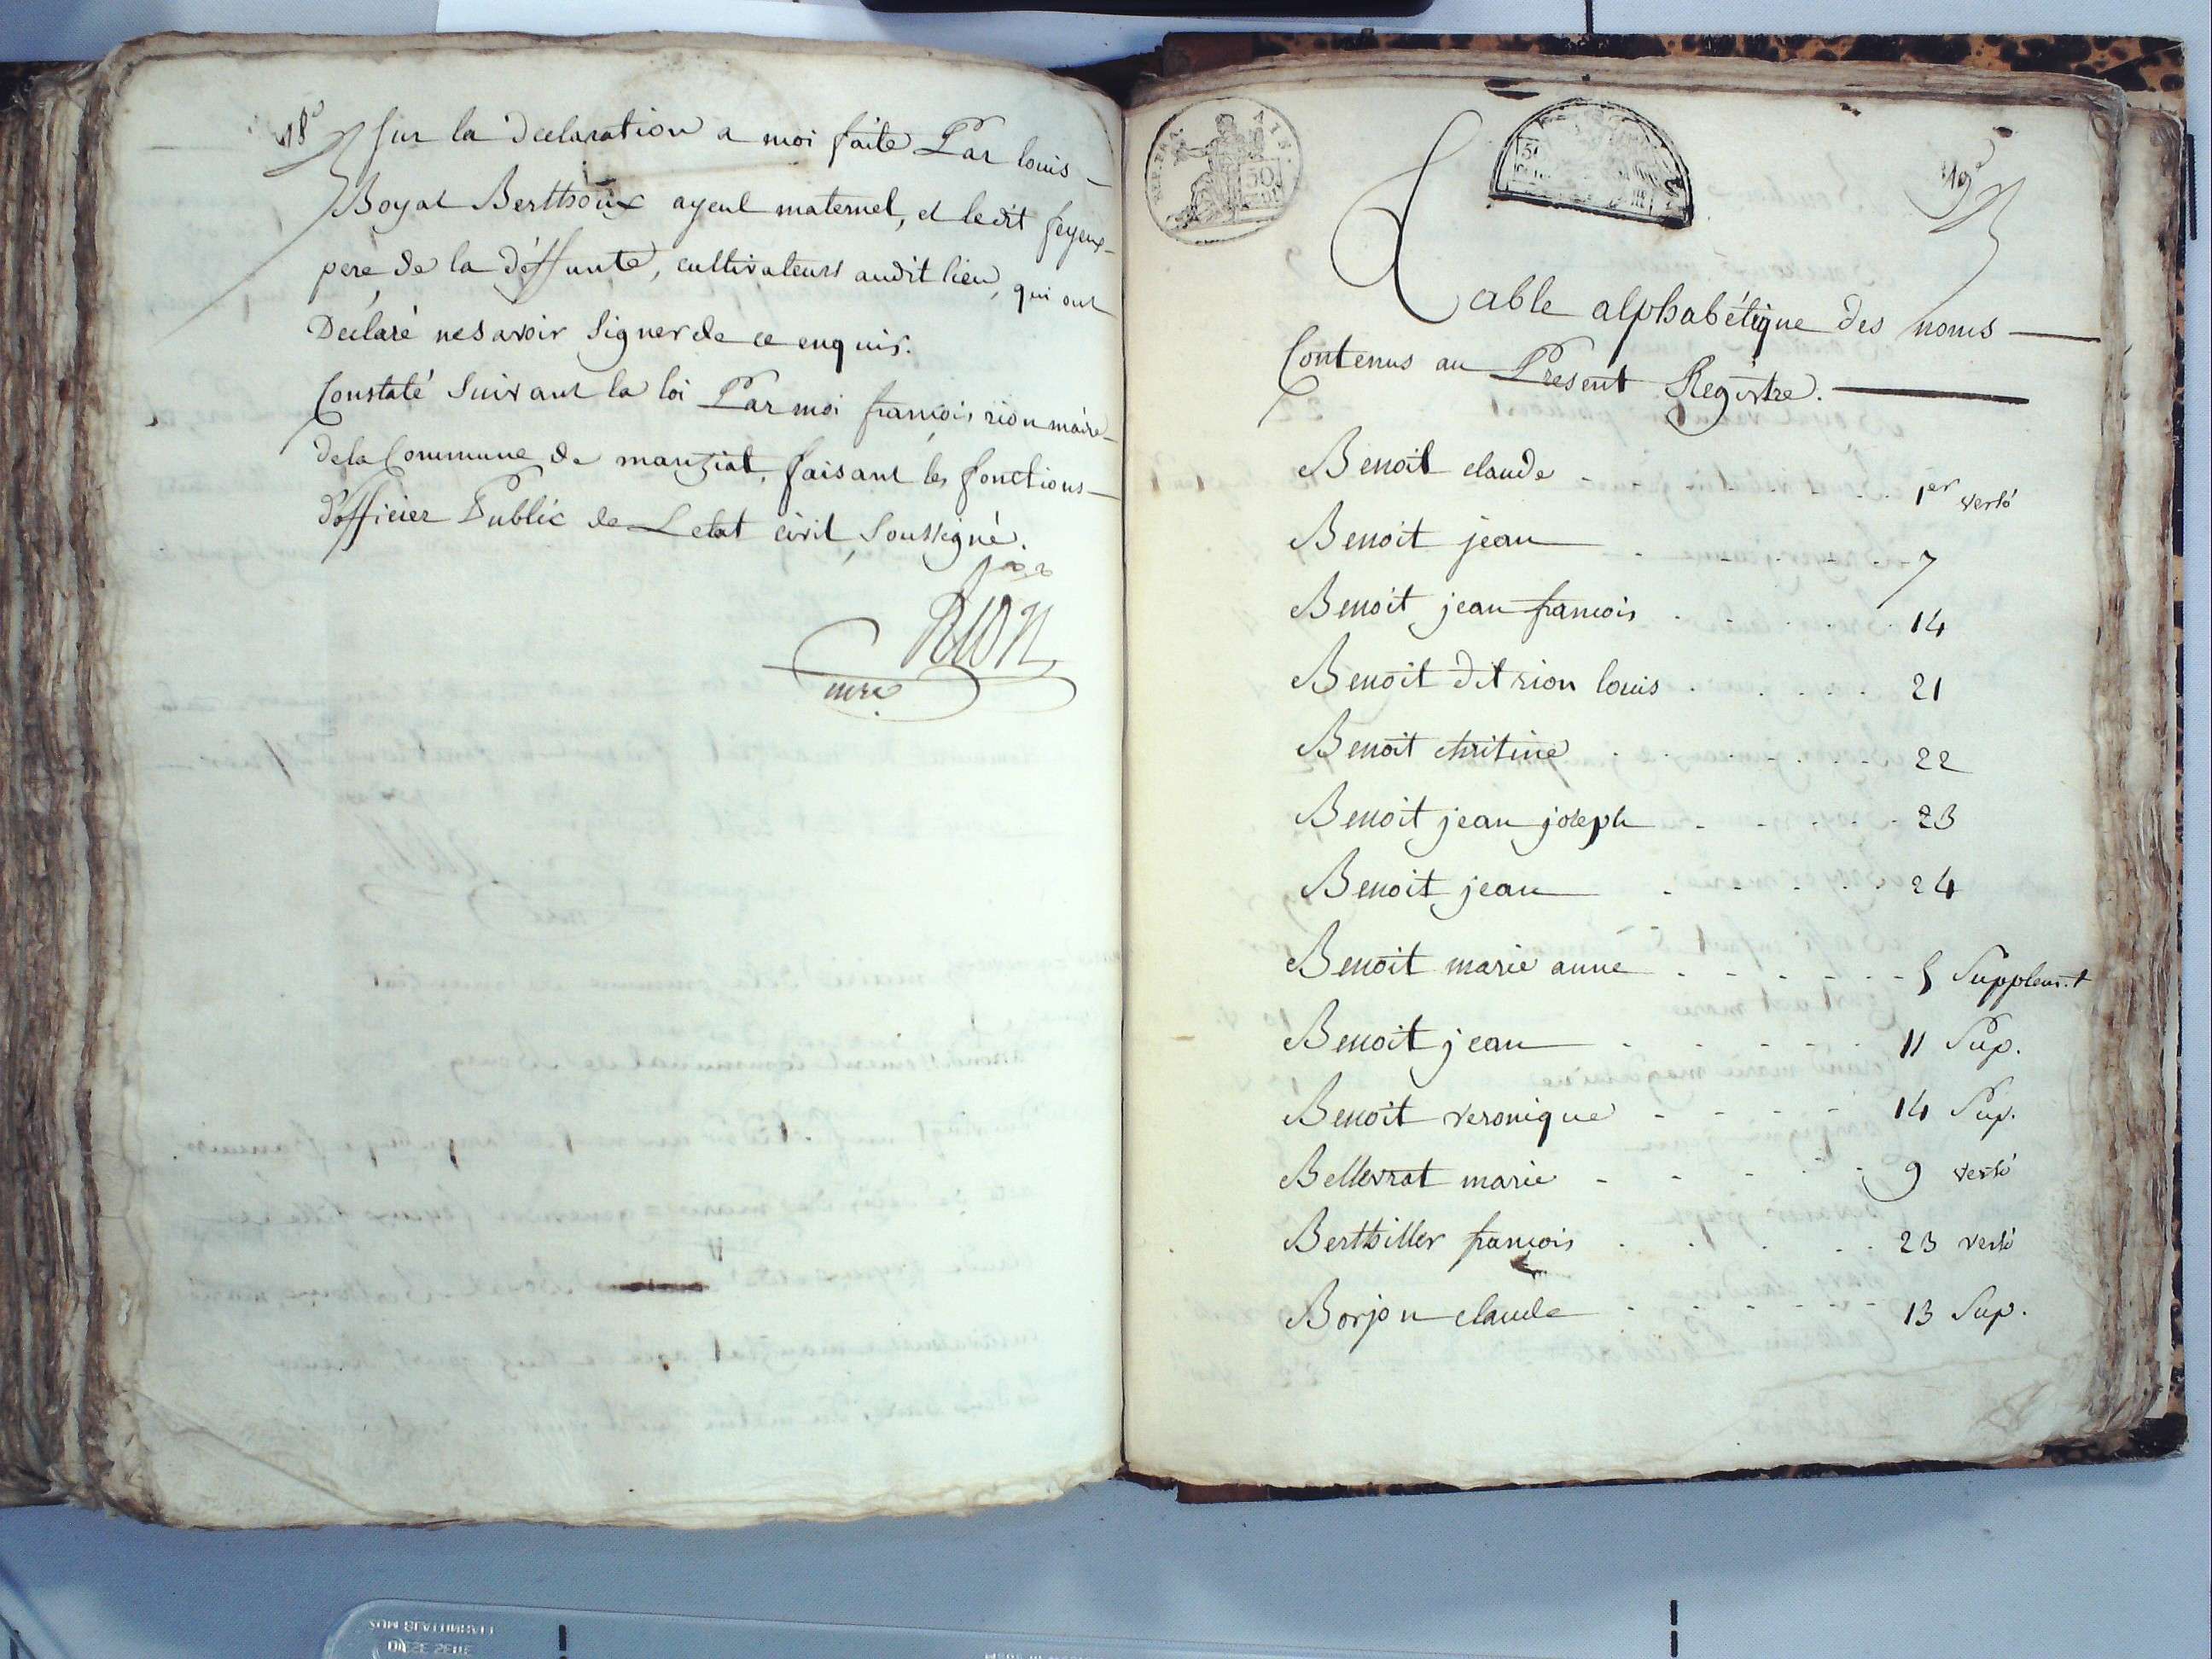 18e
Sur la declaration a moi faite Par louis
Boyat Berthoux ayeul maternel, et ledit feyeux
pere de la déffunte, cultivateurs audit lieu, qui ont
Declaré ne savoir Signer de ce enquis.
Constaté Suivant la loi Par moi françois rion maire
de la Commune de manziat, faisant les fonctions
d'officier Public de Letat civil Soussigné.
Rion
mre
REP. FRA. AIN.
50
19e
Table alphabétique des noms
Contenus au Present Registre.
Benoit claude 1er versò
Benoit jean 7
Benoit jean francois 14
Benoit dit rion louis 21
Benoit chritine 22
Benoit jean joseph 23
Benoit jean 24
Benoit marie anne 5 Supplem.t
Benoit jean 11 Sup.
Benoit veronique 14 Sup.
Bellevrat marie 9 versò
Berthiller françois 23 versò
Borjon claude 13 Sup.